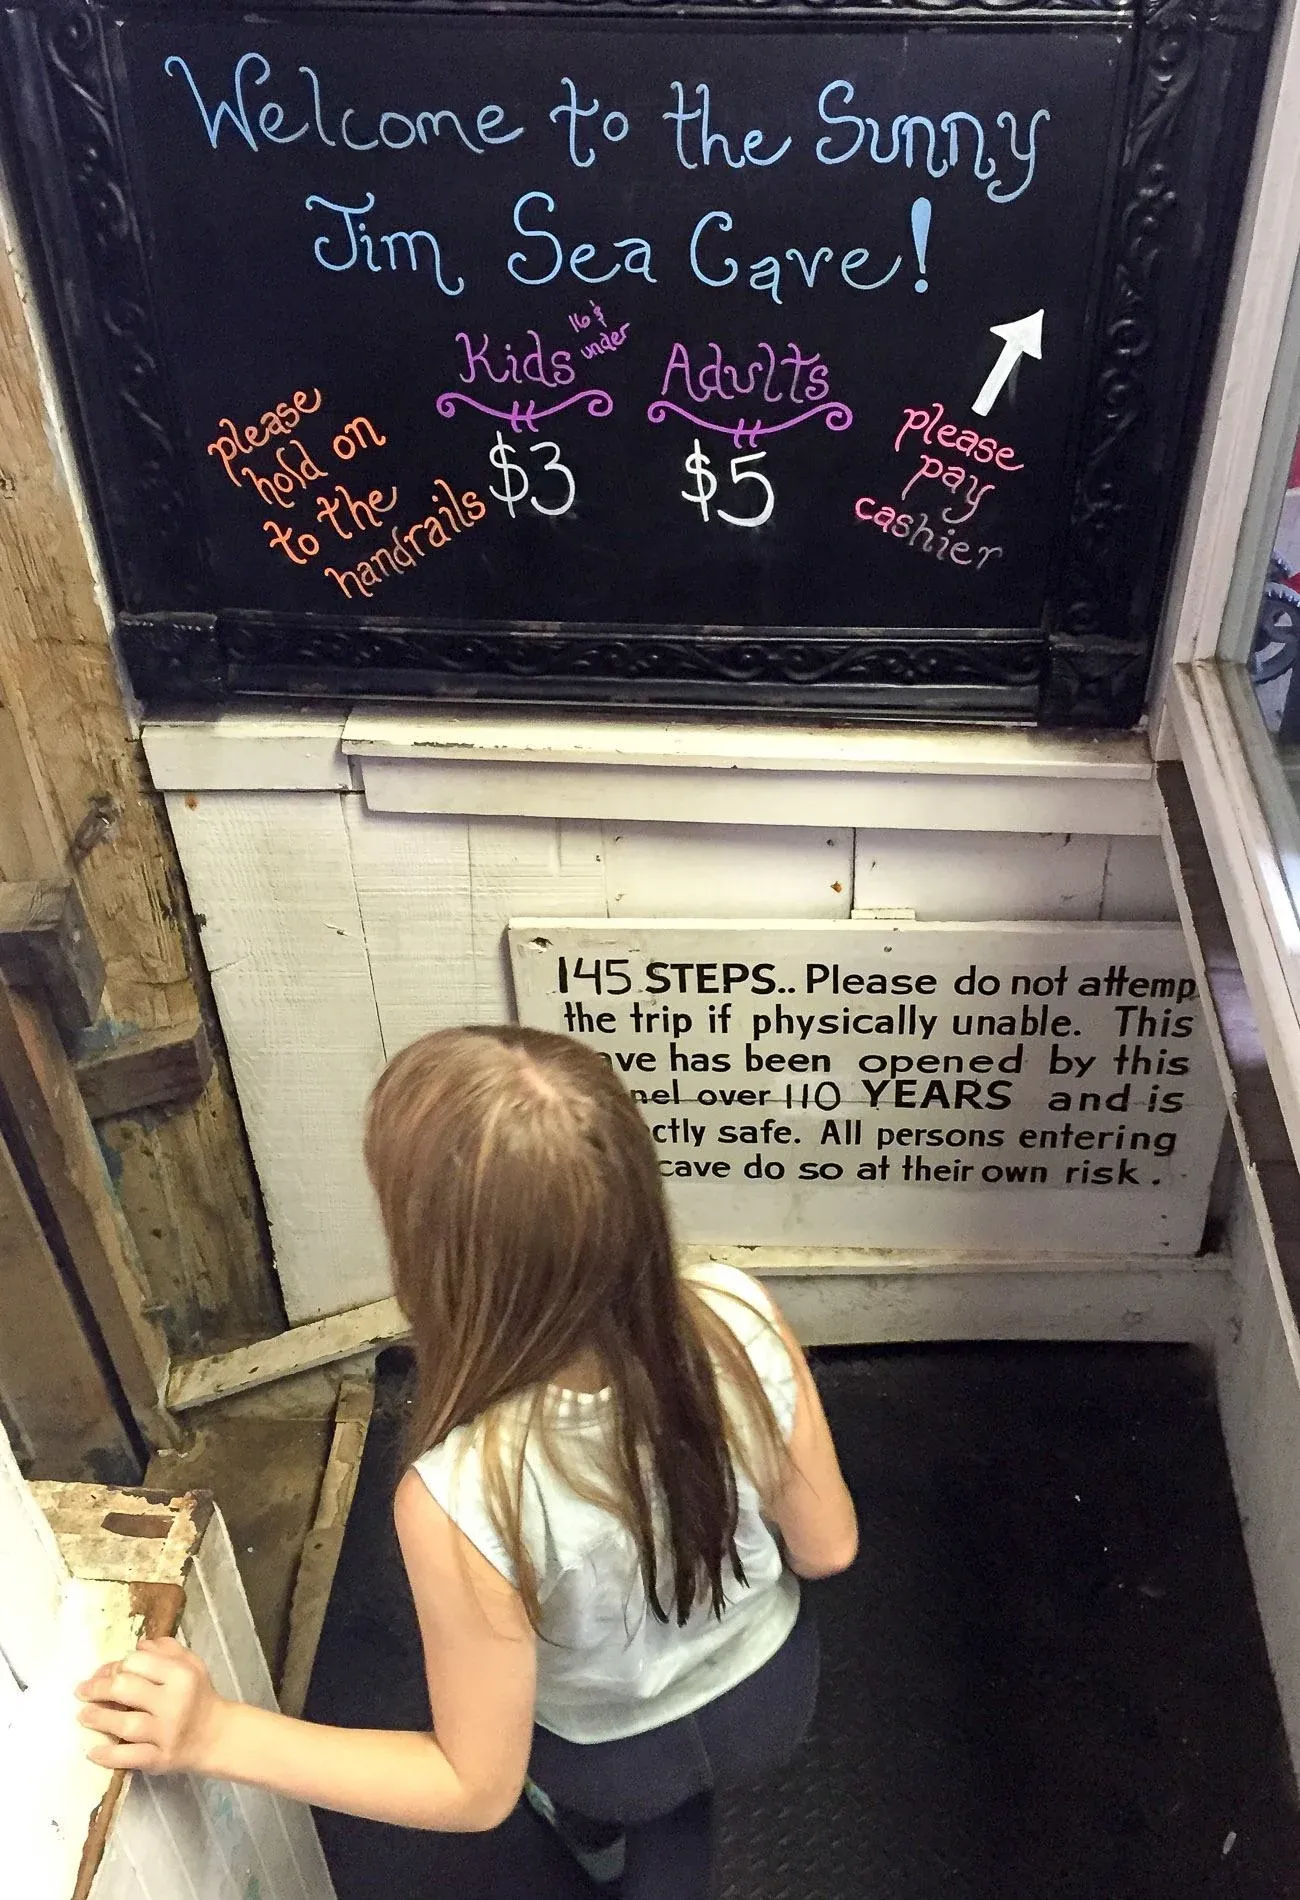 Welcome to the Sunny
Jim Sea Cave!
Kids 16 & under
$3
Adults
$5
please
hold on
to the
handrails
please
pay
cashier
145 STEPS.. Please do not attemp
the trip if physically unable. This
ave has been opened by this
nel over 110 YEARS and is
ctly safe. All persons entering
cave do so at their own risk.